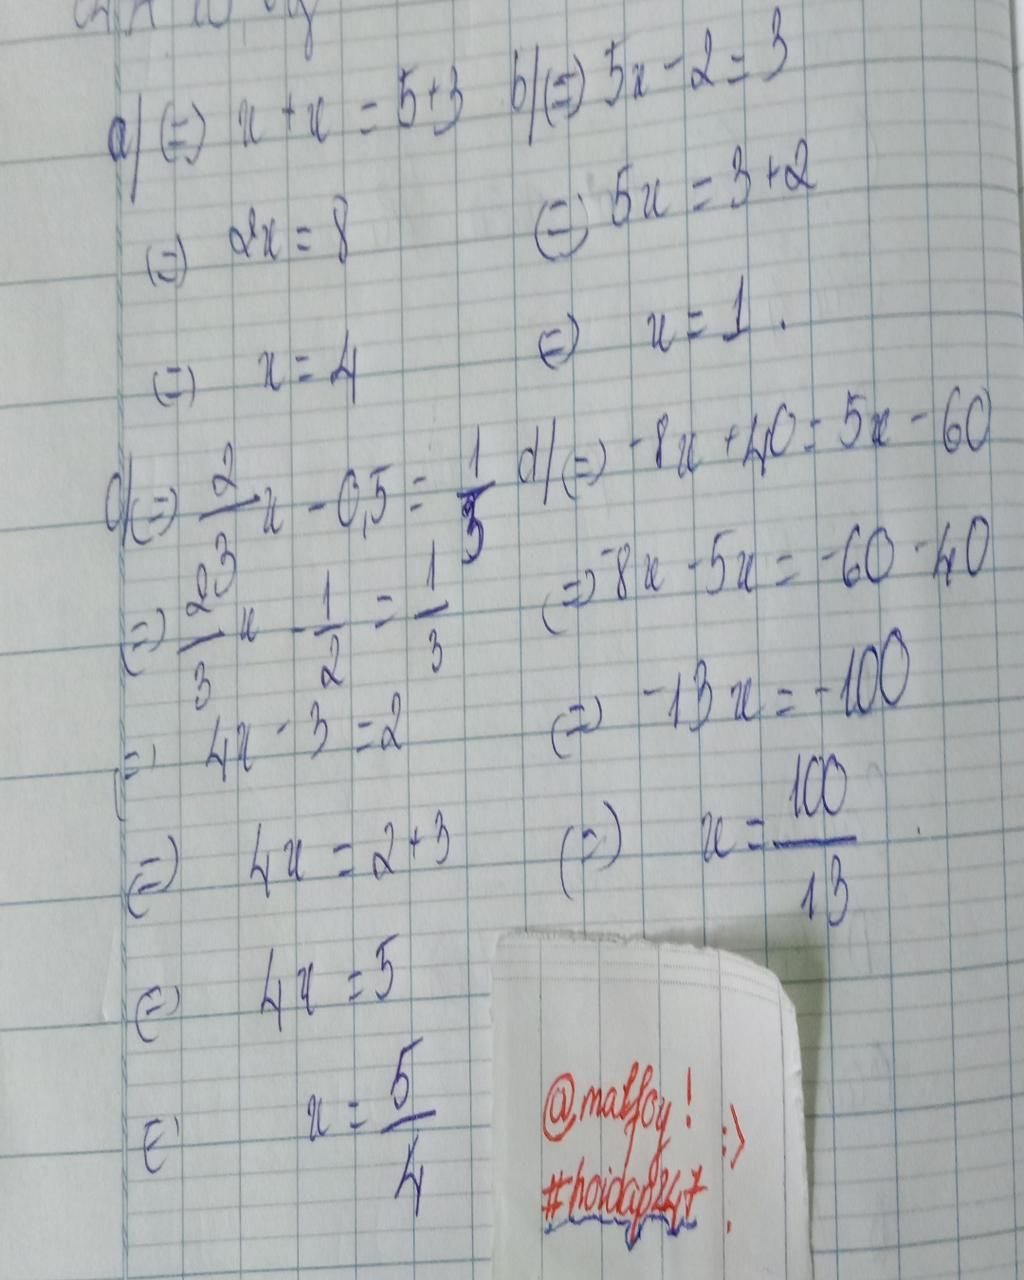 a/ (=) x + x = 5+3
(=) 2x = 8
(=) x = 4
b/ (=) 5x - 2 = 3
(=) 5x = 3+2
(=) x = 1.
(=) 2/3 x - 0,5 = 1/3
(=) 2/3 x - 1/2 = 1/3
(=) 4x - 3 = 2
(=) 4x = 2+3
(=) 4x = 5
(=) x = 5/4
d/ (=) -8x + 40 = 5x - 60
(=) -8x - 5x = -60 - 40
(=) -13x = -100
(=) x = 100/13
@malfoy! :)
#hoidap247.